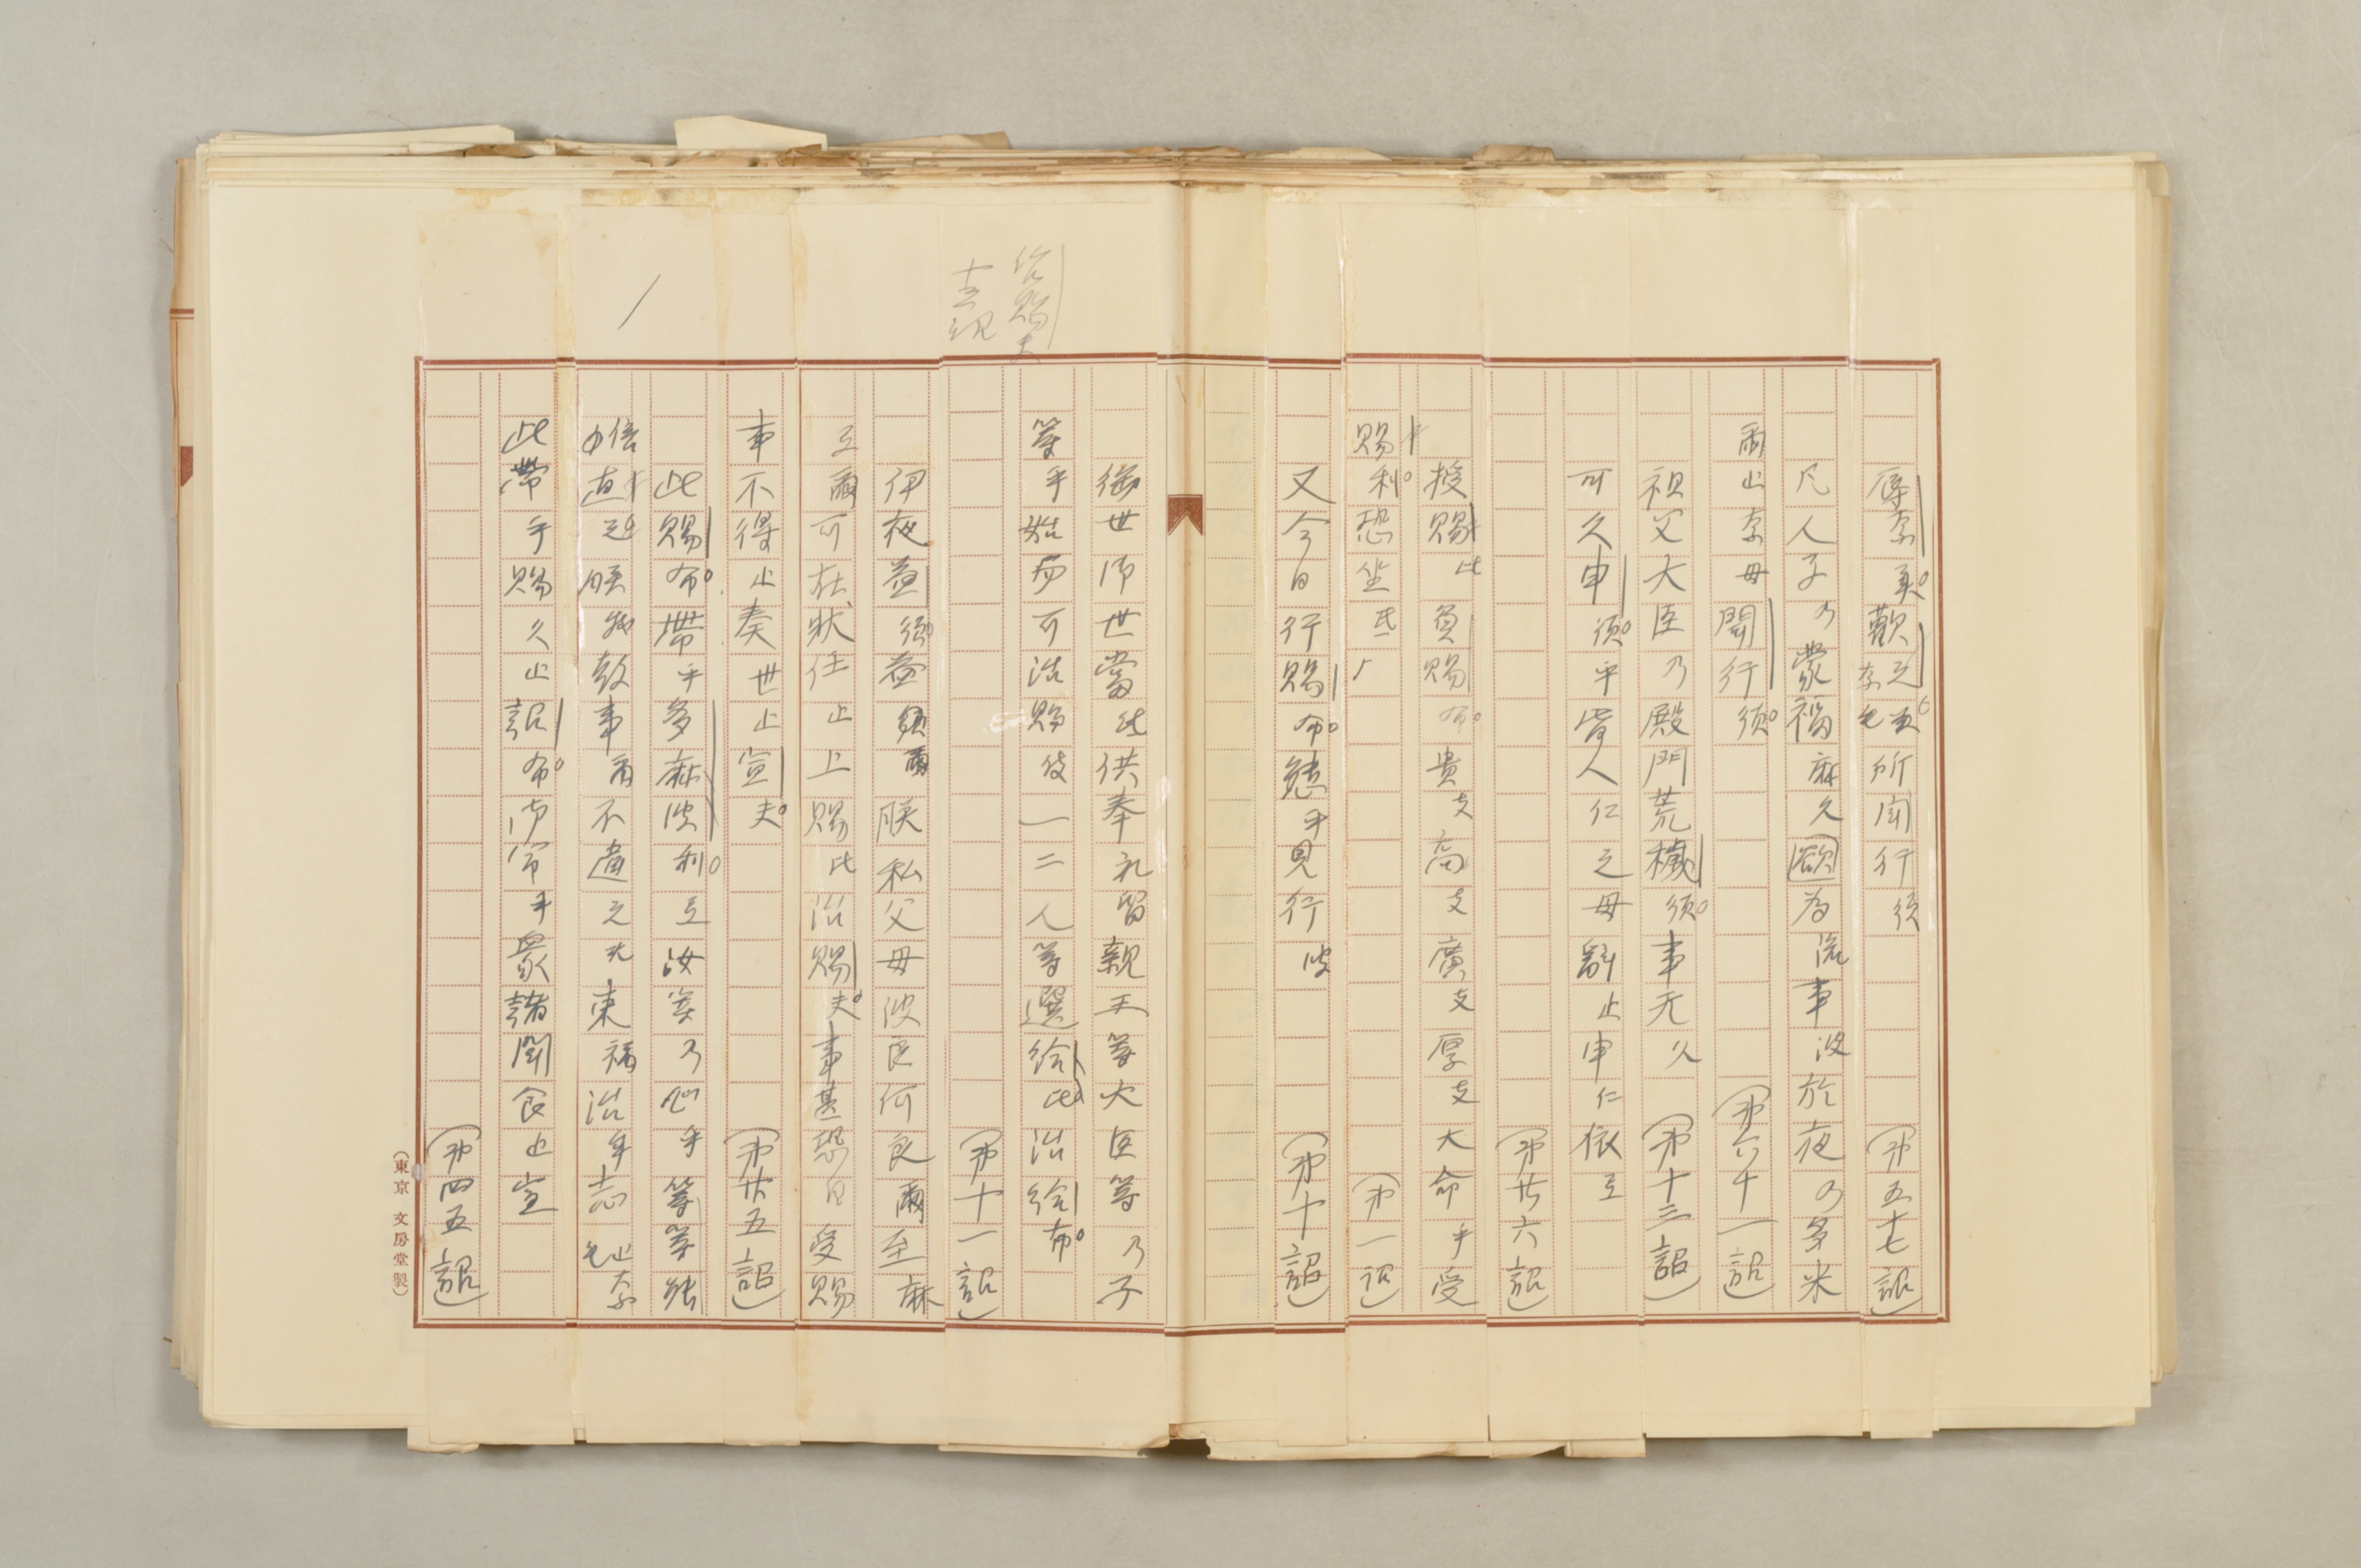 辱奈美歡之美奈毛所聞行須
(第五十七詔)
凡人子乃蒙福麻久欲為流事波於夜乃多米
爾止奈母聞行須
(第六十一詔)
祖父大臣乃殿門荒穢須事无久
(第十三詔)
可久申須乎皆人仁之毋辭止申仁依弖
(第廿六詔)
授賜比負賜布貴支高支廣支厚支大命乎受
賜利恐坐弖
(第一詔)
又今日行賜布態乎見行波
(第十詔)
御世御世當弖供奉礼留親王等大臣等乃子
等乎始而可治賜伎一二人等選給比治給布
(第十一詔)
伊夜益須益須爾朕私父母波良何良爾至麻
弖爾可在状任止上賜比治賜夫事甚恐自受賜
事不得止奏世止宣夫
(第廿五詔)
此賜布帶乎多麻波利弖汝等乃心乎等等能
倍直之朕我教事爾不違之天束祢治牟表止奈毛
此帶乎賜久止詔布御命乎衆諸聞食止宣
(第四五詔)
治賜夫
(東京 文房堂製)